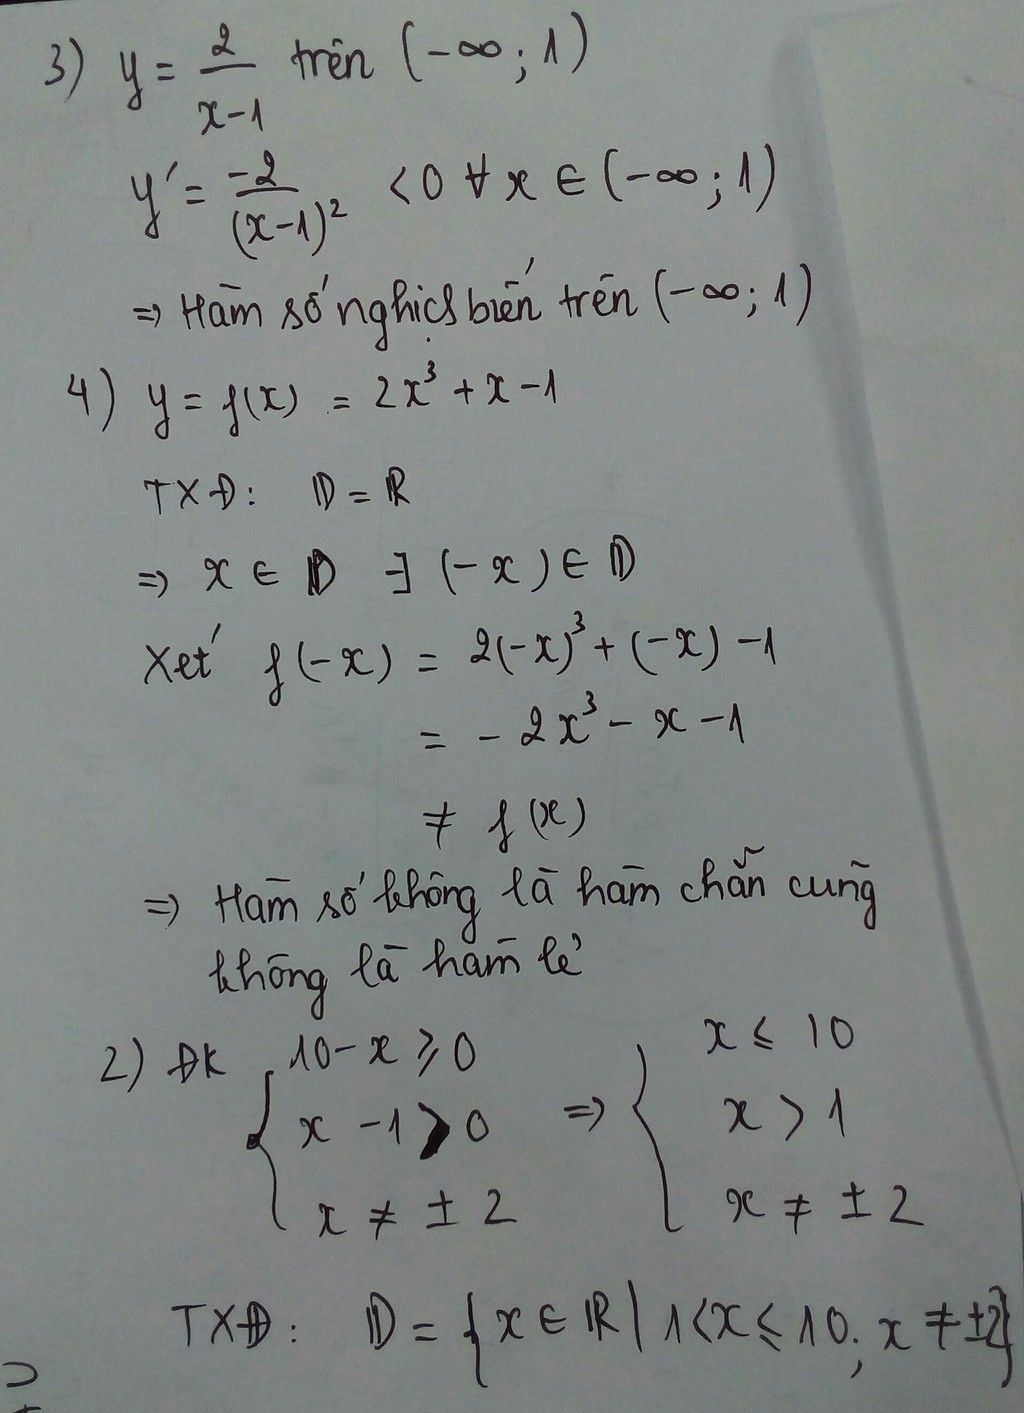 3) y = 2/(x-1) trên (-∞; 1)
y' = -2/(x-1)² < 0 ∀ x ∈ (-∞; 1)
=> Hàm số nghịch biến trên (-∞; 1)
4) y = f(x) = 2x³ + x - 1
TXĐ: D = R
=> x ∈ D ∃ (-x) ∈ D
Xét f(-x) = 2(-x)³ + (-x) - 1
= - 2x³ - x - 1
≠ f(x)
=> Hàm số không là hàm chẵn cũng
không là hàm lẻ
2) ĐK { 10 - x ⩾ 0 => { x ⩽ 10
x - 1 > 0 x > 1
x ≠ ± 2 x ≠ ± 2
TXĐ: D = {x ∈ R | 1 < x ⩽ 10; x ≠ ±2}